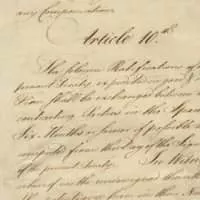 any Compensation.
Article 10th
The solemn Ratifications of
present Treaty expedited in good &
Form shall be exchanged between
contracting Parties in the Span
Six Months or sooner if possible
computed from the Day of the Sig
of the present Treaty. In Witne
whereof we the undersigned their